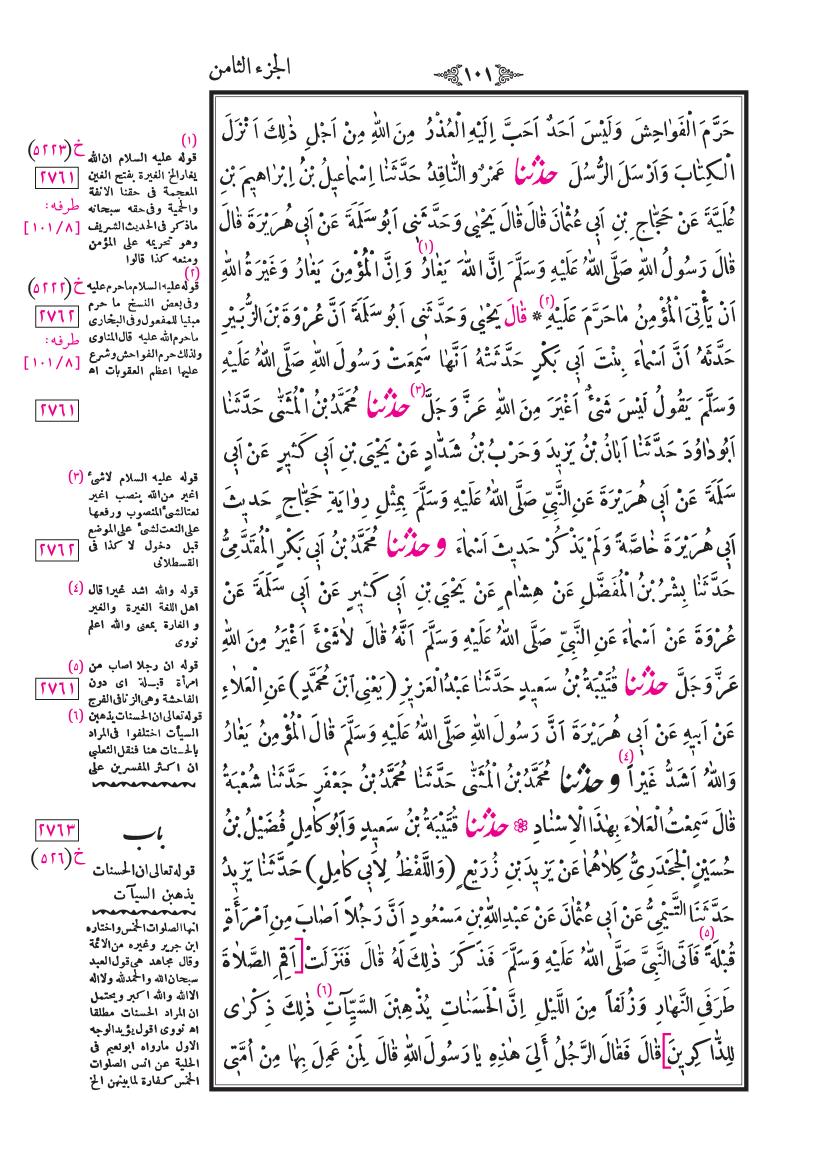 الجزء الثامن
١٠١
حَرَّمَ الْفَوَاحِشَ وَلَيْسَ اَحَدٌ اَحَبَّ اِلَيْهِ الْعُذْرُ مِنَ اللهِ مِنْ اَجْلِ ذٰلِكَ اَنْزَلَ
الْكِتَابَ وَاَرْسَلَ الرُّسُلَ حدّثنا عَمْرٌو النَّاقِدُ حَدَّثَنَا اِسْمَاعِيلُ بْنُ اِبْرَاهِيمَ بْنِ
عُلَيَّةَ عَنْ حَجَّاجِ بْنِ اَبِي عُثْمَانَ قَالَ قَالَ يَحْيٰى وَحَدَّثَنِى اَبُوسَلَمَةَ عَنْ اَبِي هُرَيْرَةَ قَالَ
قَالَ رَسُولُ اللهِ صَلَّى اللهُ عَلَيْهِ وَسَلَّمَ اِنَّ اللهَ يَغَارُ (١) وَاِنَّ الْمُؤْمِنَ يَغَارُ وَغَيْرَةُ اللهِ
اَنْ يَأْتِىَ الْمُؤْمِنُ مَاحَرَّمَ عَلَيْهِ (٢) * قَالَ يَحْيٰى وَحَدَّثَنِى اَبُوسَلَمَةَ اَنَّ عُرْوَةَ بْنَ الزُّبَيْرِ
حَدَّثَهُ اَنَّ اَسْمَاءَ بِنْتَ اَبِي بَكْرٍ حَدَّثَتْهُ اَنَّهَا سَمِعَتْ رَسُولَ اللهِ صَلَّى اللهُ عَلَيْهِ
وَسَلَّمَ يَقُولُ لَيْسَ شَىْءٌ اَغْيَرَ مِنَ اللهِ عَزَّ وَجَلَّ (٣) حدّثنا مُحَمَّدُ بْنُ الْمُثَنّٰى حَدَّثَنَا
اَبُودَاوُدَ حَدَّثَنَا اَبَانُ بْنُ يَزِيدَ وَحَرْبُ بْنُ شَدَّادٍ عَنْ يَحْيَى بْنِ اَبِي كَثِيرٍ عَنْ اَبِي
سَلَمَةَ عَنْ اَبِي هُرَيْرَةَ عَنِ النَّبِيِّ صَلَّى اللهُ عَلَيْهِ وَسَلَّمَ بِمِثْلِ رِوَايَةِ حَجَّاجٍ حَدِيثَ
اَبِي هُرَيْرَةَ خَاصَّةً وَلَمْ يَذْكُرْ حَدِيثَ اَسْمَاءَ وحدّثنا مُحَمَّدُ بْنُ اَبِي بَكْرٍ الْمُقَدَّمِيُّ
حَدَّثَنَا بِشْرُ بْنُ الْمُفَضَّلِ عَنْ هِشَامٍ عَنْ يَحْيَى بْنِ اَبِي كَثِيرٍ عَنْ اَبِي سَلَمَةَ عَنْ
عُرْوَةَ عَنْ اَسْمَاءَ عَنِ النَّبِيِّ صَلَّى اللهُ عَلَيْهِ وَسَلَّمَ اَنَّهُ قَالَ لَاشَىْءَ اَغْيَرُ مِنَ اللهِ
عَزَّ وَجَلَّ حدّثنا قُتَيْبَةُ بْنُ سَعِيدٍ حَدَّثَنَا عَبْدُ الْعَزِيزِ (يَعْنِى ابْنَ مُحَمَّدٍ) عَنِ الْعَلَاءِ
عَنْ اَبِيهِ عَنْ اَبِي هُرَيْرَةَ اَنَّ رَسُولَ اللهِ صَلَّى اللهُ عَلَيْهِ وَسَلَّمَ قَالَ الْمُؤْمِنُ يَغَارُ
وَاللهُ اَشَدُّ غَيْراً (٤) وحدّثنا مُحَمَّدُ بْنُ الْمُثَنّٰى حَدَّثَنَا مُحَمَّدُ بْنُ جَعْفَرٍ حَدَّثَنَا شُعْبَةُ
قَالَ سَمِعْتُ الْعَلَاءَ بِهٰذَا الْاِسْنَادِ ❁ حدّثنا قُتَيْبَةُ بْنُ سَعِيدٍ وَاَبُوكَامِلٍ فُضَيْلُ بْنُ
حُسَيْنٍ الْجَحْدَرِىُّ كِلَاهُمَا عَنْ يَزِيدَ بْنِ زُرَيْعٍ (وَاللَّفْظُ لِاَبِي كَامِلٍ) حَدَّثَنَا يَزِيدُ
حَدَّثَنَا التَّيْمِيُّ عَنْ اَبِي عُثْمَانَ عَنْ عَبْدِ اللهِ بْنِ مَسْعُودٍ اَنَّ رَجُلاً اَصَابَ مِنِ امْرَأَةٍ
قُبْلَةً (٥) فَاَتَى النَّبِيَّ صَلَّى اللهُ عَلَيْهِ وَسَلَّمَ فَذَكَرَ ذٰلِكَ لَهُ قَالَ فَنَزَلَتْ [اَقِمِ الصَّلَاةَ
طَرَفَىِ النَّهَارِ وَزُلَفاً مِنَ اللَّيْلِ اِنَّ الْحَسَنَاتِ يُذْهِبْنَ السَّيِّآتِ (٦) ذٰلِكَ ذِكْرٰى
لِلذَّاكِرِينَ] قَالَ فَقَالَ الرَّجُلُ أَلِىَ هٰذِهِ يَارَسُولَ اللهِ قَالَ لِمَنْ عَمِلَ بِهَا مِنْ اُمَّتِى
(١)
قوله عليه السلام ان الله
يغار الخ الغيرة بفتح الغين
المعجمة فى حقنا الانفة
والحمية وفى حقه سبحانه
ماذكر فى الحديث الشريف
وهو تحريمه على المؤمن
ومنعه كذا قالوا
(٢)
قوله عليه السلام ماحرم عليه
وفى بعض النسخ ما حرم
مبنيا للمفعول وفى البخارى
ماحرم الله عليه قال المناوى
ولذلك حرم الفواحش وشرع
عليها اعظم العقوبات اه
(٣) قوله عليه السلام لاشىء
اغير من الله بنصب اغير
نعتا لشىء المنصوب ورفعها
على النعت لشىء على الموضع
قبل دخول لا كذا فى
القسطلانى
(٤) قوله والله اشد غيرا قال
اهل اللغة الغيرة والغير
والغارة بمعنى والله اعلم
نووى
(٥) قوله ان رجلا اصاب من
امرأة قبلة اى دون
الفاحشة وهى الزنا فى الفرج
(٦) قوله تعالى ان الحسنات يذهبن
السيآت اختلفوا فى المراد
بالحسنات هنا فنقل الثعلبى
ان اكثر المفسرين على
باب
قوله تعالى ان الحسنات
يذهبن السيآت
انها الصلوات الخمس واختاره
ابن جرير وغيره من الائمة
وقال مجاهد هى قول العبد
سبحان الله والحمد لله ولا اله
الا الله والله اكبر ويحتمل
ان المراد الحسنات مطلقا
اه نووى اقول يؤيد الوجه
الاول مارواه ابونعيم فى
الحلية عن انس الصلوات
الخمس كفارة لما بينهن الخ
خ (٥٢٢٣)
٢٧٦١
طرفه:
[١٠١/٨]
خ (٥٢٢٢)
٢٧٦٢
طرفه:
[١٠١/٨]
٢٧٦١
٢٧٦٢
٢٧٦١
٢٧٦٣
خ (٥٢٦)